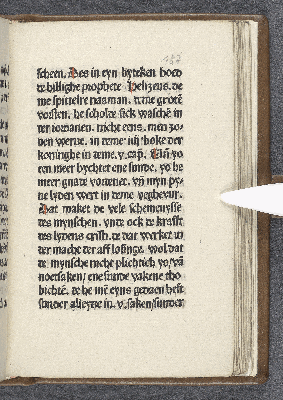 157
scheen. Des in eyn byteken boed
de hillighe prophete Helizeus. de
me spittelre naaman. eme grote
vorsten. he scholde sick wasche in
der iordanen. nicht eens. men zo
uen werue. in deme iiij boke der
koninghe in deme .v. cap. Vñ yo
een meer bychtet ene sunde. yo he
meer gnade vordenet. vñ myn py
ne lyden wert in deme veghevur.
Dat maket de vele schemenysse
des mynschen. vnde ock de krafft
des lydens cristi. de dar werket in
der macht der afflosinge. wol dat
de mynsche nicht plichtich ys / vā
noetsaken / ene sunde vakene tho
bichtē. de he mēt eyns gedaen heft
sunder alleyne in .v. saken / sunder